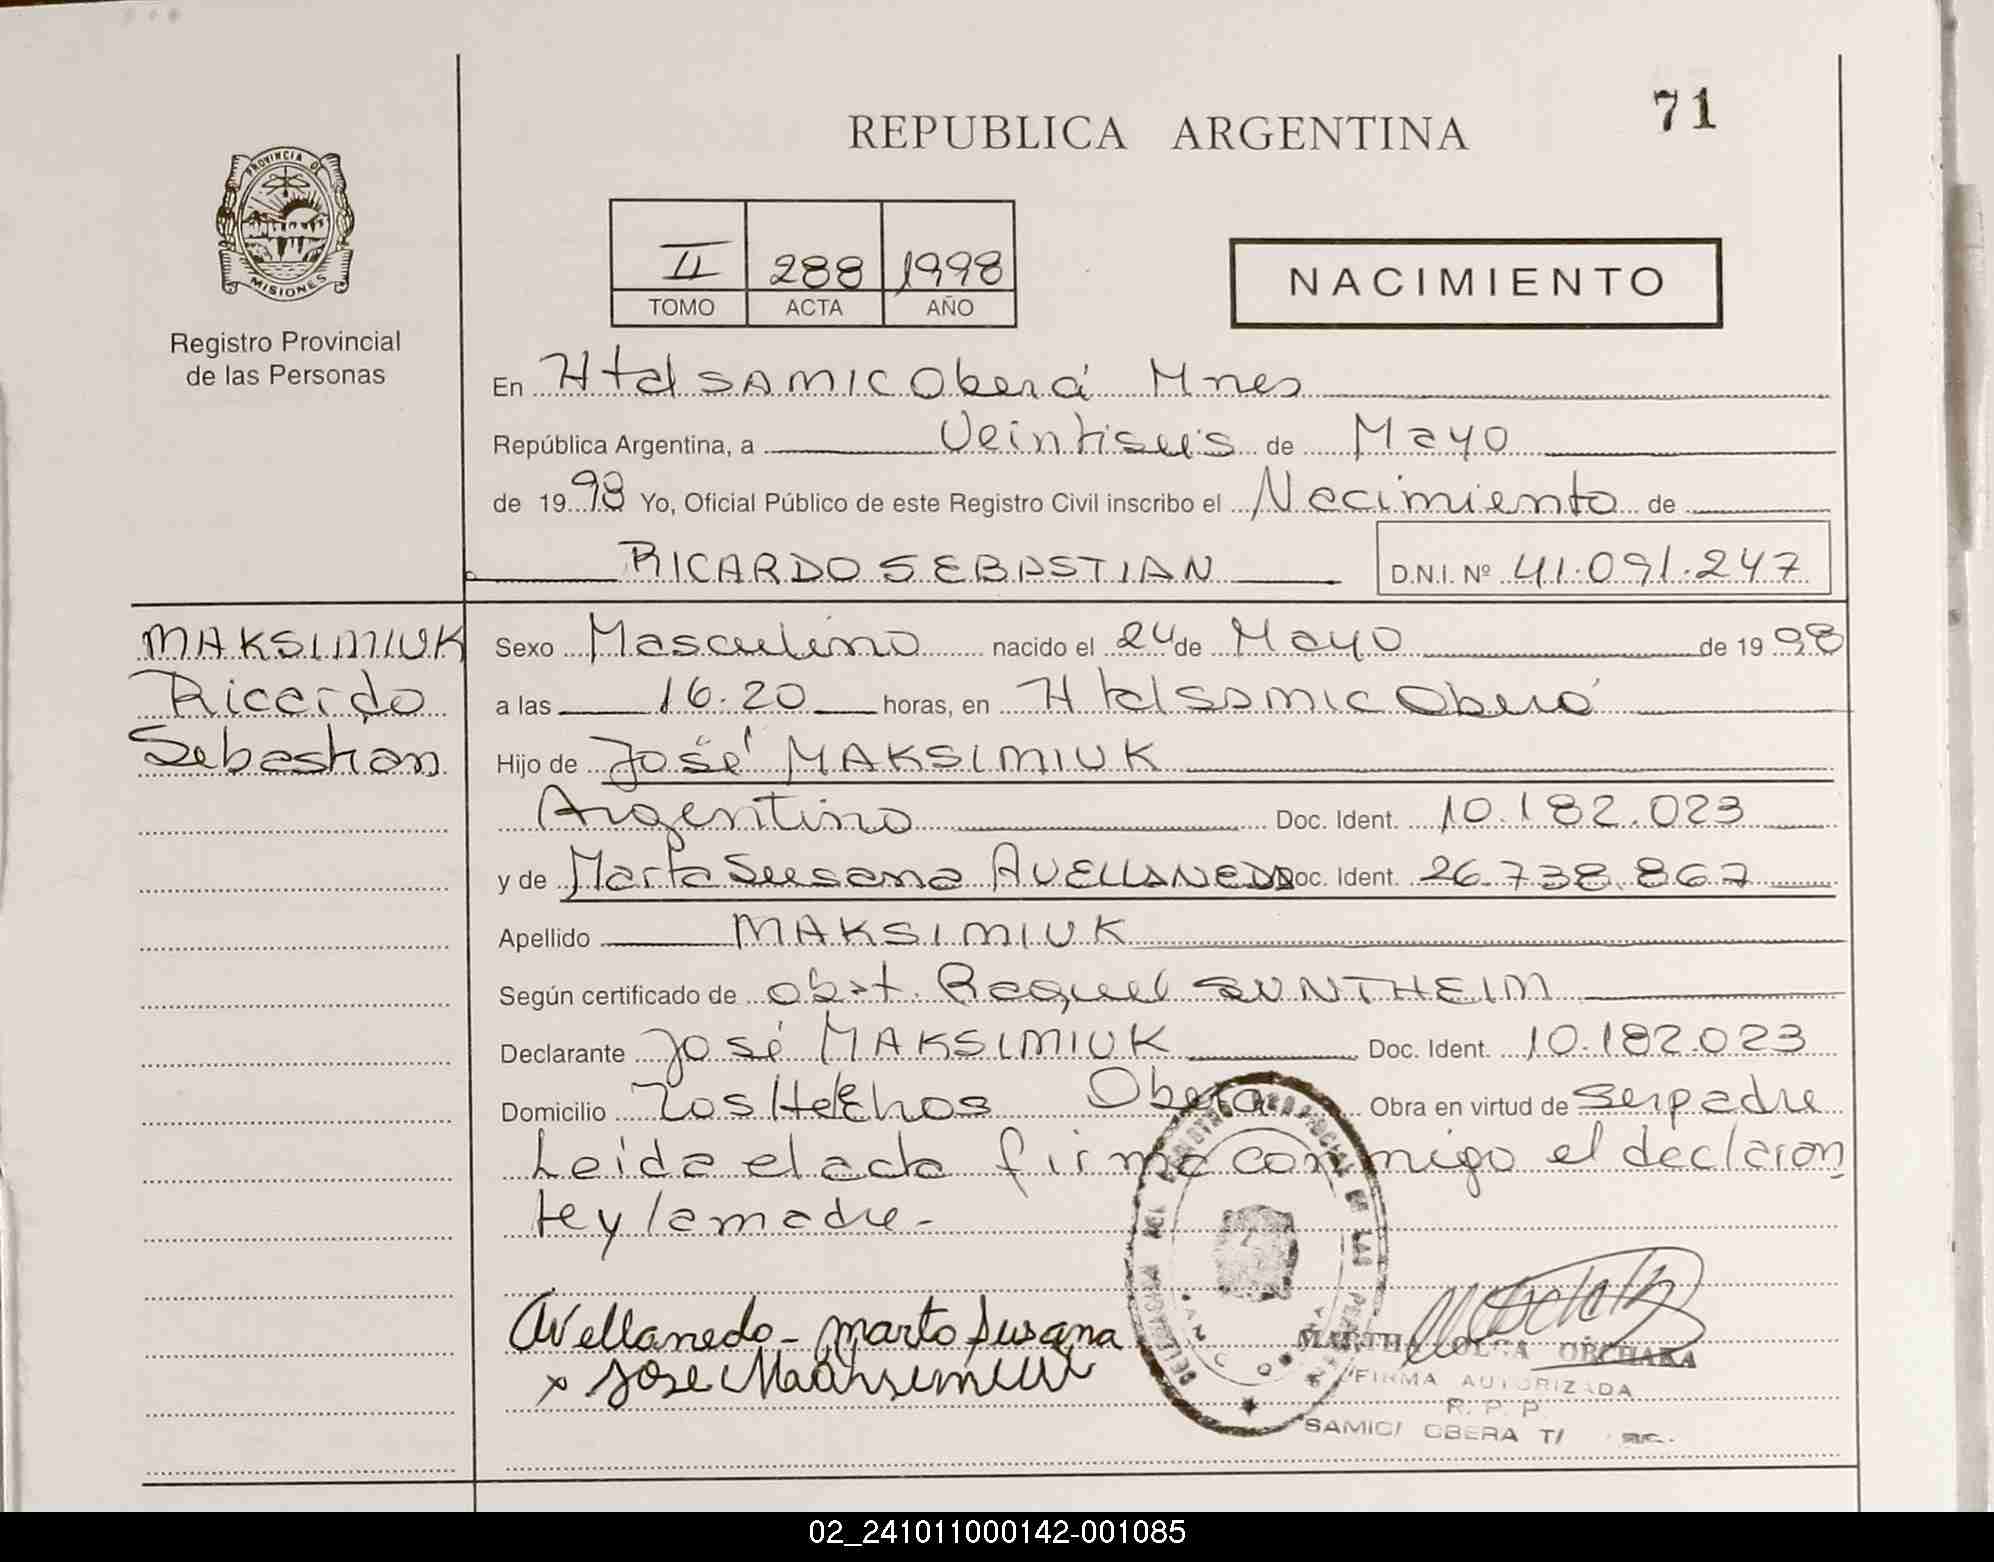 71
REPUBLICA ARGENTINA
PROVINCIA DE
MISIONES
Registro Provincial
de las Personas
II 288 1998
TOMO ACTA AÑO
NACIMIENTO
En Htal SAMIC Oberá Mnes
República Argentina, a Veintiseis de Mayo
de 1998 Yo, Oficial Público de este Registro Civil inscribo el Nacimiento de
RICARDO SEBASTIAN D.N.I. Nº 41.091.247
MAKSIMIUK
Ricardo
Sebastian
Sexo Masculino nacido el 24 de Mayo de 1998
a las 16.20 horas, en Htal SAMIC Oberá
Hijo de José MAKSIMIUK
Argentino Doc. Ident. 10.182.023
y de Marta Susana AVELLANEDA Doc. Ident. 26.738.867
Apellido MAKSIMIUK
Según certificado de obst. Raquel SUNTHEIM
Declarante José MAKSIMIUK Doc. Ident. 10.182.023
Domicilio Los Helechos Oberá Obra en virtud de ser padre
Leida el acta firma conmigo el declaran
te y la madre-
Avellaneda - Marta Susana
x Jose Maksimiuk
MARTHA OLGA ORCHAKA
FIRMA AUTORIZADA
R. P. P.
SAMIC/ OBERA T/
02_241011000142-001085